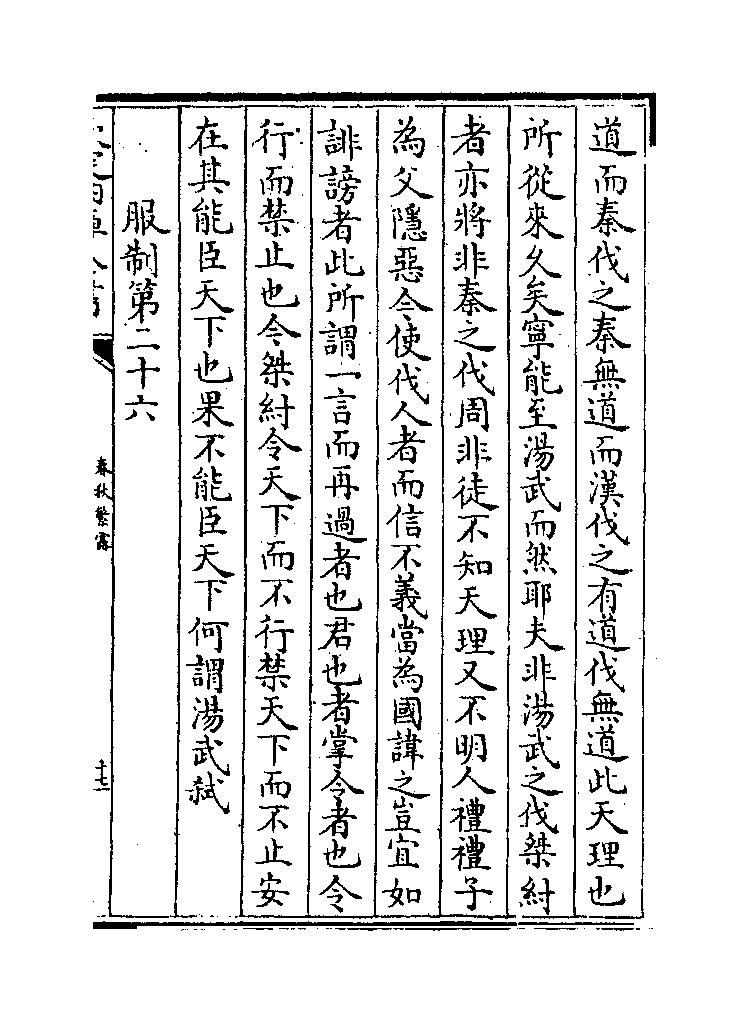 道而秦伐之秦無道而漢伐之有道伐無道此天理也
所從來久矣寧能至湯武而然耶夫非湯武之伐桀紂
者亦將非秦之伐周非徒不知天理又不明人禮禮子
為父隱惡今使伐人者而信不義當為國諱之豈宜如
誹謗者此所謂一言而再過者也君也者掌令者也令
行而禁止也今桀紂令天下而不行禁天下而不止安
在其能臣天下也果不能臣天下何謂湯武弑
服制第二十六
春秋繁露